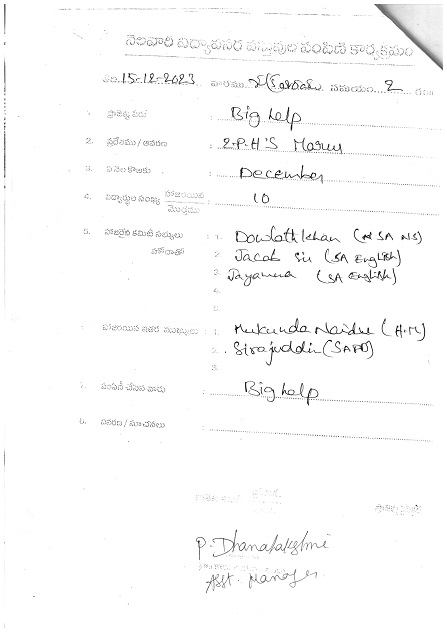 నెలవారి విద్యావసర వస్తువుల పంపిణి కార్యక్రమం
తేది. 15-12-2023 వారము. శుక్రవారము సమయం. 2 గంట
ప్రాజెక్టు పేరు : Big help
2. ప్రదేశము / ఆవరణ : Z.P.H'S
3. ఏ నెల కొఱకు : December
4. విద్యార్థుల సంఖ్య హాజరయిన / మొత్తము : 10
5. హాజరైన కమిటి సభ్యులు : 1. Dowlathkhan (SA NS)
హోదాతో 2. Jacob Sir (SA English)
3. Jayamma (SA English)
4.
5.
హాజరయిన ఇతర సభ్యులు : 1. Mukunda Naidu (H.M)
2. Sirajuddin (SAPD)
3.
7. పంపిణీ చేసిన వారు : Big help
8. వివరణ / సూచనలు :
P. Dhanalakshmi
Asst. Manager